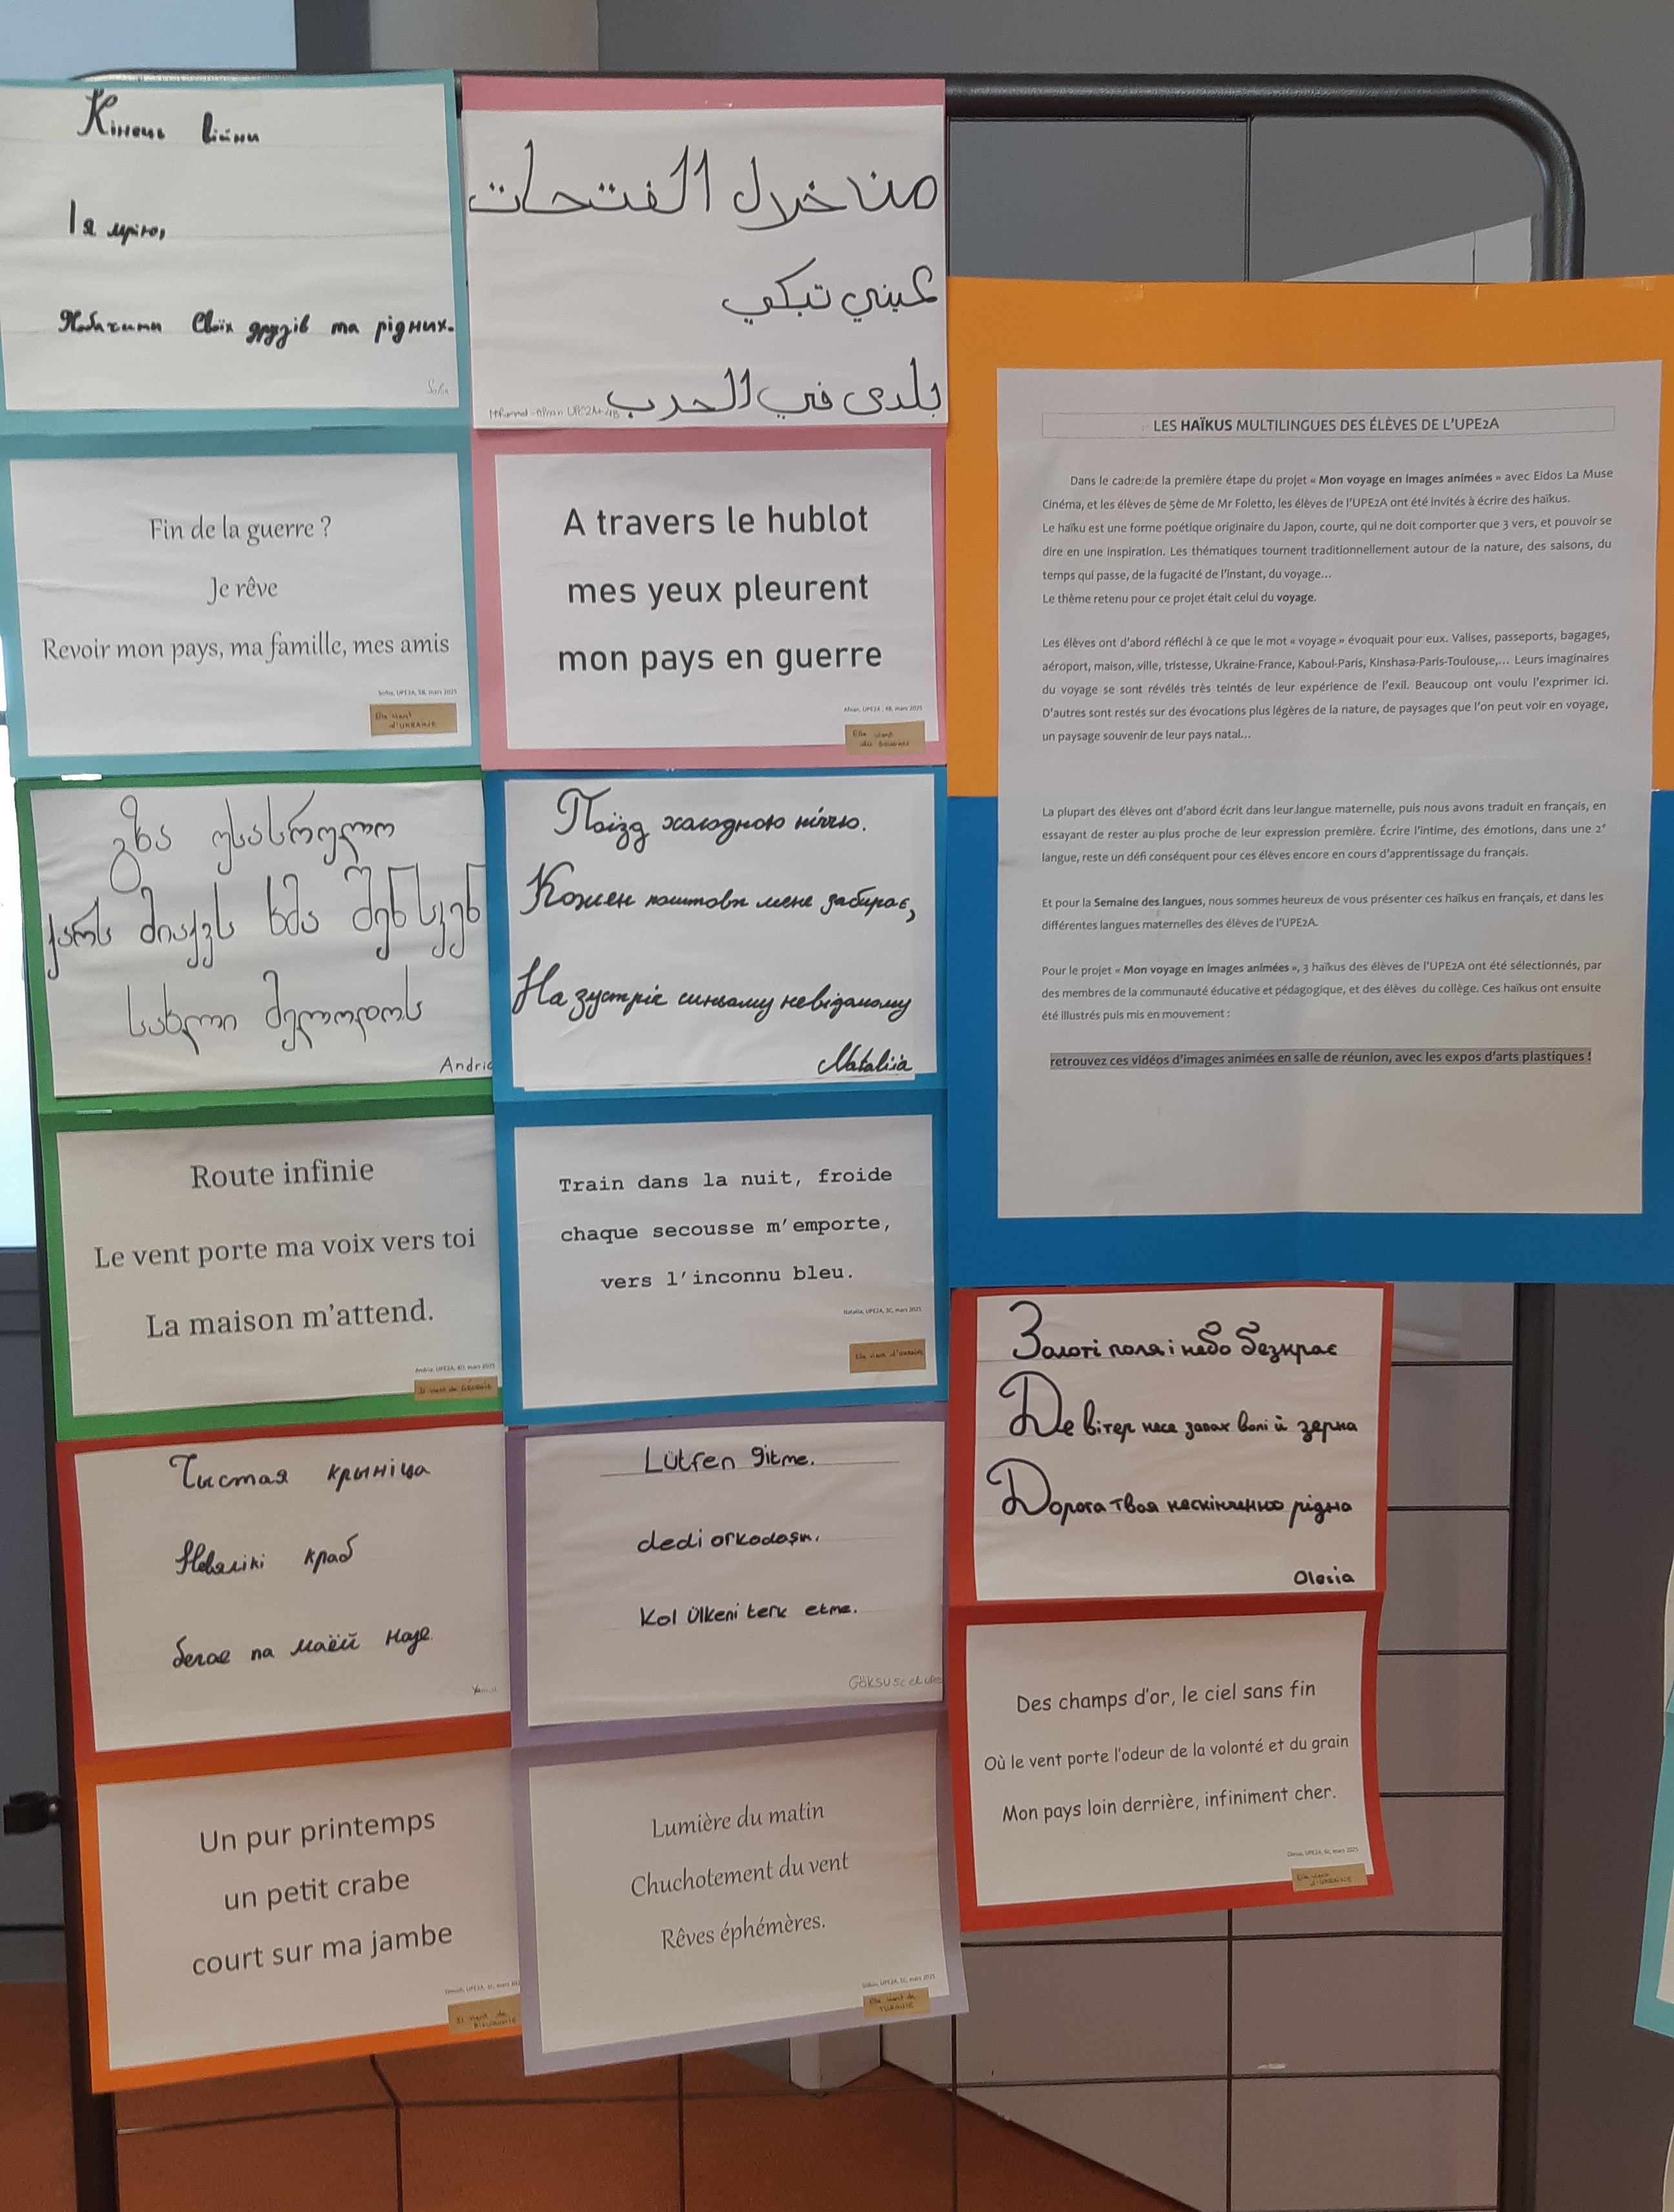 Кінець війни
І я мрію,
Побачити своїх друзів та рідних.
Sofia
Fin de la guerre ?
Je rêve
Revoir mon pays, ma famille, mes amis
Sofia, UPE2A, 5B, mars 2025
Elle vient
d'UKRAINE
გზა უსასრულო
ქარს მიაქვს ხმა შენსკენ
სახლი მელოდოს
Andria
Route infinie
Le vent porte ma voix vers toi
La maison m'attend.
Andria, UPE2A, 4D, mars 2025
Il vient de GÉORGIE
Чыстая крыніца
Невялікі краб
бегае па маёй назе
Un pur printemps
un petit crabe
court sur ma jambe
UPE2A, mars
Il vient de
BIELORUSSIE
من خلال الفتحات
عيني تبكي
بلدى في الحرب
UPE2A 4B
A travers le hublot
mes yeux pleurent
mon pays en guerre
Afnan, UPE2A, 4B, mars 2025
Elle vient
du SOUDAN
Поїзд холодною ніччю.
Кожен поштовх мене забирає,
На зустріч синьому невіданому
Nataliia
Train dans la nuit, froide
chaque secousse m'emporte,
vers l'inconnu bleu.
Nataliia, UPE2A, 3C, mars 2025
Elle vient d'Ukraine
Lütfen gitme.
dedi arkadaşım.
Kal ülkeni terk etme.
Göksu 5c
Lumière du matin
Chuchotement du vent
Rêves éphémères.
Göksu, UPE2A, 5C, mars 2025
Elle vient de
TURQUIE
LES HAÏKUS MULTILINGUES DES ÉLÈVES DE L'UPE2A
Dans le cadre de la première étape du projet « Mon voyage en images animées » avec Eidos La Muse
Cinéma, et les élèves de 5ème de Mr Foletto, les élèves de l'UPE2A ont été invités à écrire des haïkus.
Le haïku est une forme poétique originaire du Japon, courte, qui ne doit comporter que 3 vers, et pouvoir se
dire en une inspiration. Les thématiques tournent traditionnellement autour de la nature, des saisons, du
temps qui passe, de la fugacité de l'instant, du voyage...
Le thème retenu pour ce projet était celui du voyage.
Les élèves ont d'abord réfléchi à ce que le mot « voyage » évoquait pour eux. Valises, passeports, bagages,
aéroport, maison, ville, tristesse, Ukraine-France, Kaboul-Paris, Kinshasa-Paris-Toulouse,... Leurs imaginaires
du voyage se sont révélés très teintés de leur expérience de l'exil. Beaucoup ont voulu l'exprimer ici.
D'autres sont restés sur des évocations plus légères de la nature, de paysages que l'on peut voir en voyage,
un paysage souvenir de leur pays natal...
La plupart des élèves ont d'abord écrit dans leur langue maternelle, puis nous avons traduit en français, en
essayant de rester au plus proche de leur expression première. Écrire l'intime, des émotions, dans une 2e
langue, reste un défi conséquent pour ces élèves encore en cours d'apprentissage du français.
Et pour la Semaine des langues, nous sommes heureux de vous présenter ces haïkus en français, et dans les
différentes langues maternelles des élèves de l'UPE2A.
Pour le projet « Mon voyage en images animées », 3 haïkus des élèves de l'UPE2A ont été sélectionnés, par
des membres de la communauté éducative et pédagogique, et des élèves du collège. Ces haïkus ont ensuite
été illustrés puis mis en mouvement :
retrouvez ces vidéos d'images animées en salle de réunion, avec les expos d'arts plastiques !
Золоті поля і небо безкрає
Де вітер несе запах волі й зерна
Дорога твоя нескінченно рідна
Olesia
Des champs d'or, le ciel sans fin
Où le vent porte l'odeur de la volonté et du grain
Mon pays loin derrière, infiniment cher.
Olesia, UPE2A, 6c, mars 2025
Elle vient
d'UKRAINE